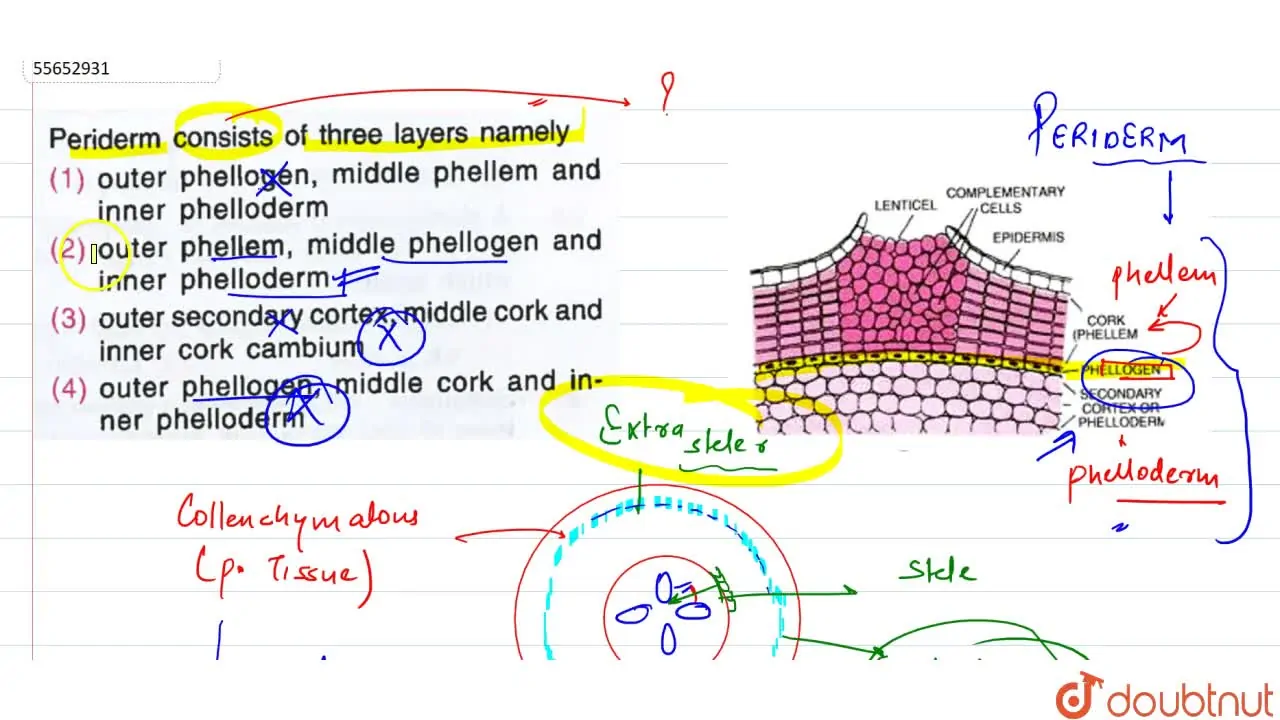 55652931
?
Periderm consists of three layers namely
(1) outer phellogen, middle phellem and
inner phelloderm
(2) outer phellem, middle phellogen and
inner phelloderm
(3) outer secondary cortex, middle cork and
inner cork cambium
(4) outer phellogen, middle cork and in-
ner phelloderm
PERIDERM
LENTICEL
COMPLEMENTARY
CELLS
EPIDERMIS
CORK
(PHELLEM
PHELLOGEN
SECONDARY
CORTEX OR
PHELLODERM
phellem
phelloderm
Extra
steler
Collenchymatous
(p. Tissue)
Stele
doubtnut